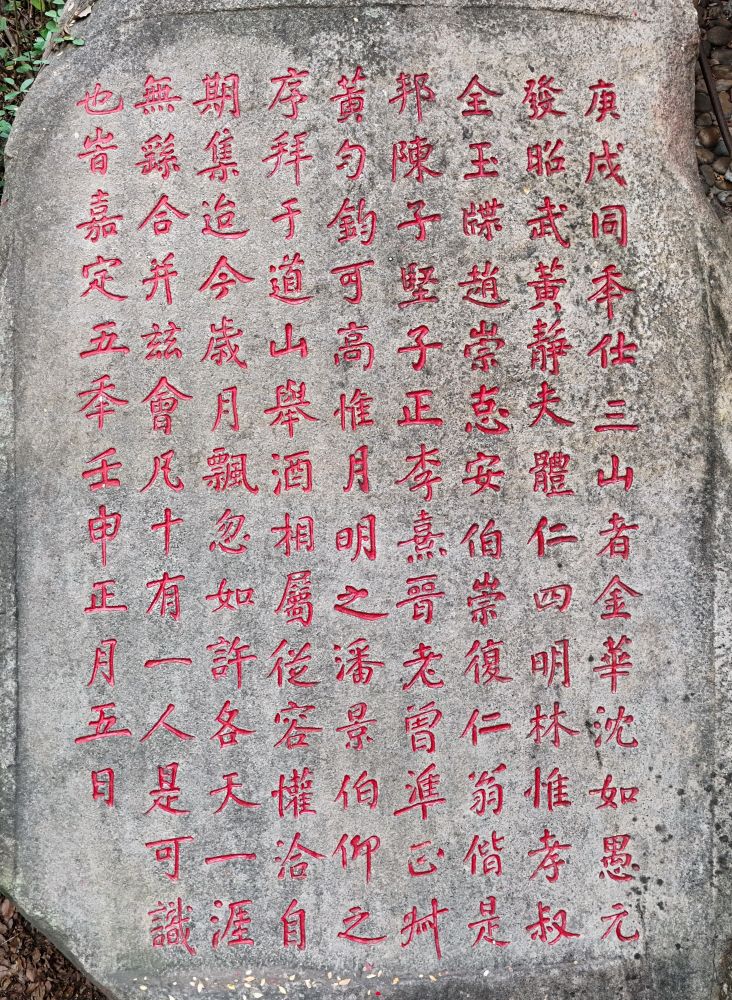 庚戌同秊仕三山者金華沈如愚元
發昭武黃靜夫體仁四明林惟孝叔
全玉牒趙崇安伯崇復仁翁偕是
邦陳子堅子正李熹晉老曾準正艸
黃勻鈞可高惟月明之潘景伯仰之
序拜于道山舉酒相屬從容懽洽自
期集迨今歲月飄忽如許各天一涯
無繇合并茲會凡十有一人是可識
也旹嘉定五秊壬申正月五日